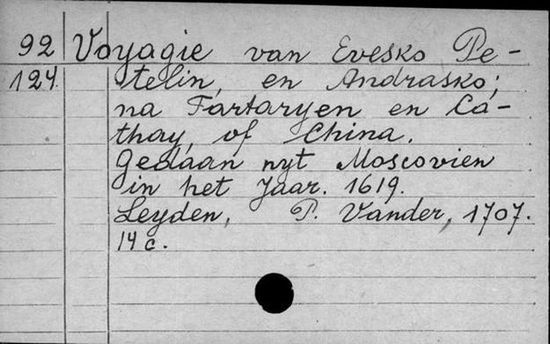 92 Voyagie van Evesko Pe-
124. telin, en Andrasko;
na Tartaryen en Ca-
thay, of China.
Gedaan uyt Moscovien
in het Jaar. 1619.
Leyden, P. Vander, 1707.
14 c.